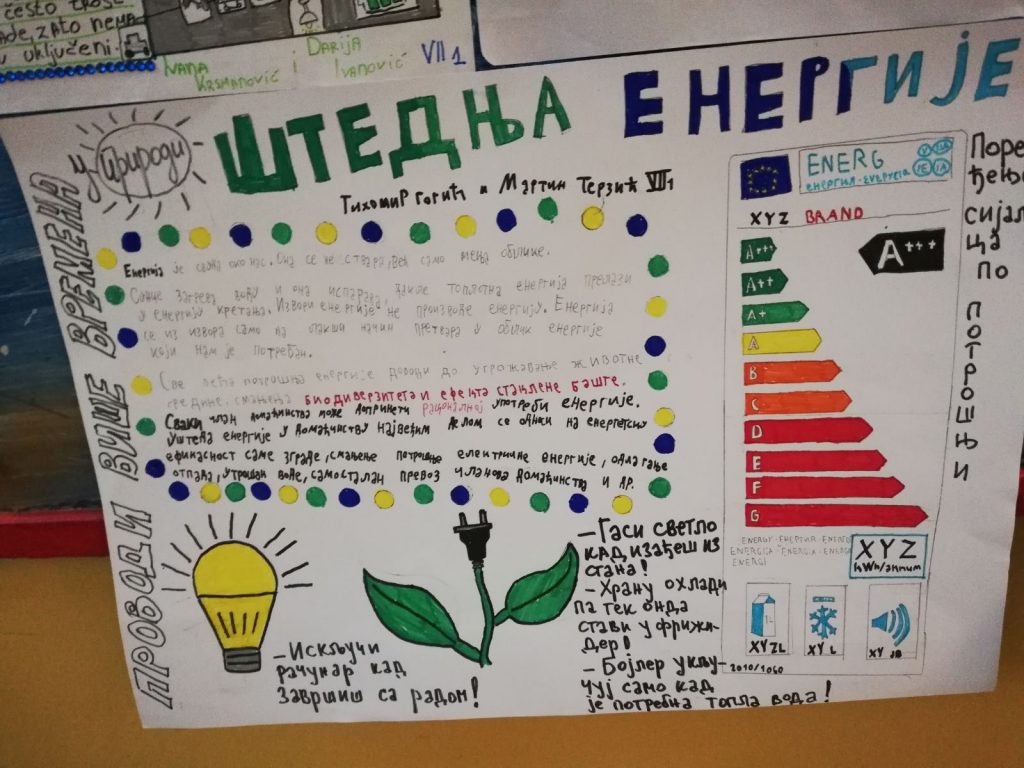 često troše
zato nema
uključeni.
IVANA
KRSMANOVIĆ
i
DARIJA
IVANOVIĆ
VII 1
ШТЕДЊА ЕНЕРГИЈЕ
Тихомир и Мартин Терзић VII1
ПРОВОДИ ВИШЕ ВРЕМЕНА
у природи
Енергија је свуда око нас. Она се не ствара, већ само мења облике.
Сунце загрева воду и она испарава, топлотна енергија прелази
у енергију кретања. Извори енергије не производе енергију. Енергија
се из извора само на лакши начин претвара у облик енергије
који нам је потребан.
Све већа потрошња енергије доводи до угрожавање животне
средине, смањења БИОДИВЕРЗИТЕТА И ЕФЕКТА СТАКЛЕНЕ БАШТЕ.
Сваки члан домаћинства може допринети рационалној употреби енергије.
Уштеда енергије у домаћинству највећим делом се односи на енергетску
ефикасност саме зграде, смањење потрошње електричне енергије, одлагање
отпада, утрошак воде, самосталан превоз чланова домаћинства и др.
-Искључи
рачунар кад
завршиш са радом!
-Гаси светло
кад изађеш из
стана!
-Храну охлади
па тек онда
стави у фрижи-
дер!
-Бојлер укљу-
чуј само кад
је потребна топла вода!
ENERG
XYZ BRAND
A+++
A+++
A++
A+
A
B
C
D
E
F
G
ENERGI
XYZ
kWh/annum
XYZL
XYL
2010/1060
Поре
ђење
сијали
ца
по
ПОТРОШЊИ